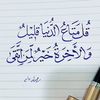 قُلْ مَتَاعُ الدُّنْيَا قَلِيلٌ
وَالْآخِرَةُ خَيْرٌ لِمَنِ اتَّقَى